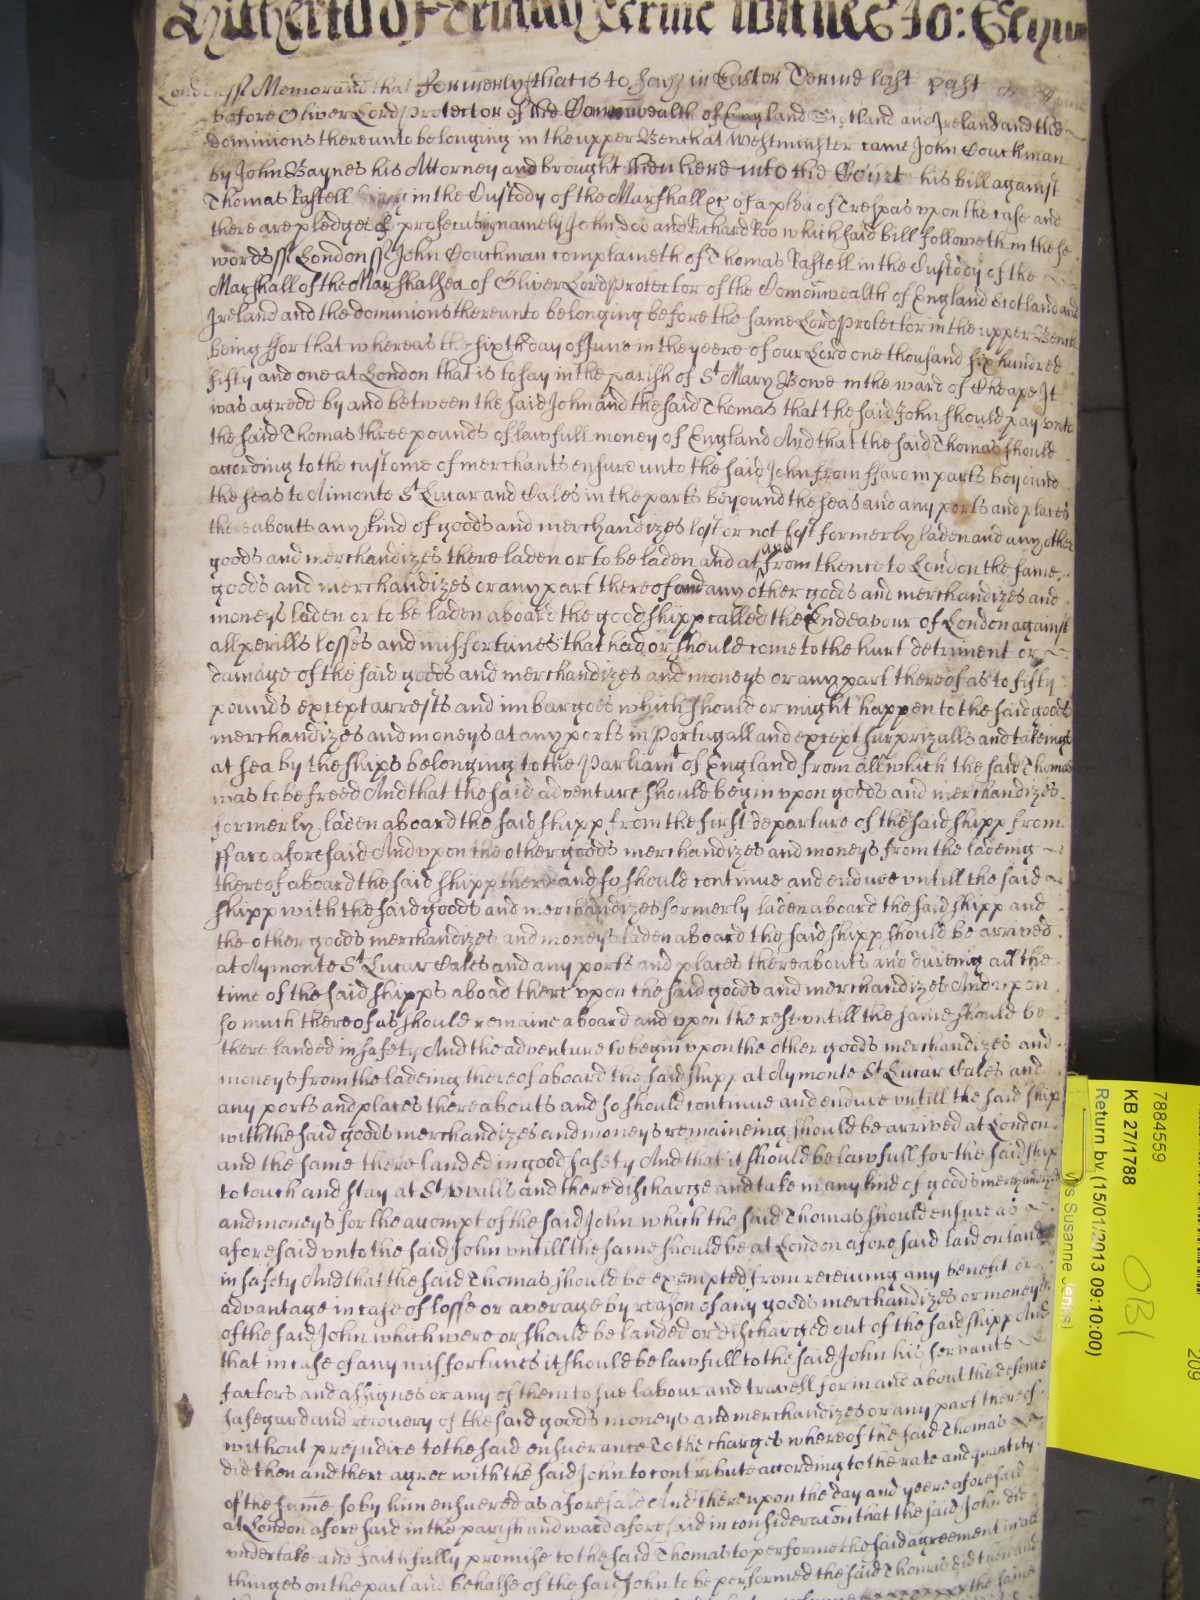 Hitherto of Trinity Terme witnes Jo:
London ss Memorand that formerly (that is to say) in Easter Terme last past
before Oliver Lord Protector of the Comonwealth of England Scotland and Ireland and the
dominions thereunto belonging in the upper Bench at Westminster came John Couckman
by John Baynes his Attorney and brought then here into the Court his bill against
Thomas Rastell being in the Custody of the Marshall &c of a plea of Trespas upon the case and
there are pledges of prosecuting namely John Doo and Richard Roo which said bill followeth in these
words ss London ss John Couckman complaineth of Thomas Rastell in the Custody of the
Marshall of the Marshalsea of Oliver Lord Protector of the Comonwealth of England Scotland and
Ireland and the dominions thereunto belonging before the same Lord Protector in the upper Bench
being ffor that whereas the sixth day of June in the yeere of our Lord one thousand six hundred
fifty and one at London that is to say in the parish of St Mary Bowe in the ward of Cheape It
was agreed by and betweene the said John and the said Thomas that the said John should pay unto
the said Thomas three pounds of lawfull money of England And that the said Thomas should
according to the custome of merchants ensure unto the said John from ffaro in parts beyond
the seas to Aimonte St Lucar and Cales in the parts beyound the seas and any ports and places
thereabouts any kind of goods and merchandizes lost or not lost formerly laden and any other
goods and merchandizes there laden or to be laden and at and from thence to London the same
goods and merchandizes or any part thereof and any other goods and merchandizes and
moneys laden or to be laden aboard the good shipp called the Endeavour of London against
all perills losses and misfortunes that had or should come to the hurt detriment or
damage of the said goods and merchandizes and moneys or any part thereof as to fifty
pounds except arrests and imbargoes which should or might happen to the said goods
merchandizes and moneys at any ports in Portugall and except surprizalls and takeings
at sea by the ships belonging to the Parliamt of England from all which the said Thomas
was to be freed And that the said adventure should begin upon goods and merchandizes
formerly laden aboard the said shipp from the first departure of the said shipp from
ffaro aforesaid And upon the other goods merchandizes and moneys from the ladeing
thereof aboard the said shipp there and so should continue and endure untill the said
shipp with the said goods and merchandizes formerly laden aboard the said shipp and
the other goods merchandizes and moneys laden aboard the said shipp should be arrived
at Aymonte St Lucar Cales and any ports and places thereabouts and dureing all the
time of the said shipps aboad there upon the said goods and merchandizes And upon
so much thereof as should remaine aboard and upon the rest untill the same should be
there landed in safety And the adventure to begin upon the other goods merchandizes and
moneys from the ladeing thereof aboard the said shipp at Aymonte St Lucar Cales and
any ports and places thereabouts and so should continue and endure untill the said ship
with the said goods merchandizes and moneys remaineing should be arrived at London
and the same there landed in good safety And that it should be lawfull for the said ship
to touch and stay at St and there discharge and take in any kind of goods merchandizes
and moneys for the accompt of the said John which the said Thomas should ensure as
aforesaid unto the said John untill the same should be at London aforesaid laid on land
in safety And that the said Thomas should be exempted from receiving any benefit or
advantage in case of losse or average by reason of any goods merchandizes or moneys
of the said John which were or should be landed or discharged out of the said shipp And
that in case of any misfortunes it should be lawfull to the said John his servants
factors and assignes or any of them to sue labour and travell for in and about the defence
safegard and recovery of the said goods moneys and merchandizes or any part thereof
without prejudice to the said ensuerance To the charges whereof the said Thomas
did then and there agree with the said John to contribute according to the rate and quantity
of the same so by him ensuered as aforesaid And thereupon the day and yeere aforesaid
at London aforesaid in the parish and ward aforesaid in consideracon that the said John did
undertake and faithfully promise to the said Thomas to performe the said agreement in all
things on the part and behalfe of the said John to be performed the said Thomas did then and
the same
7884559
KB 27/1788
Return by (15/01/2013 09:10:00)
s Susanne Jenks)
OBI
209